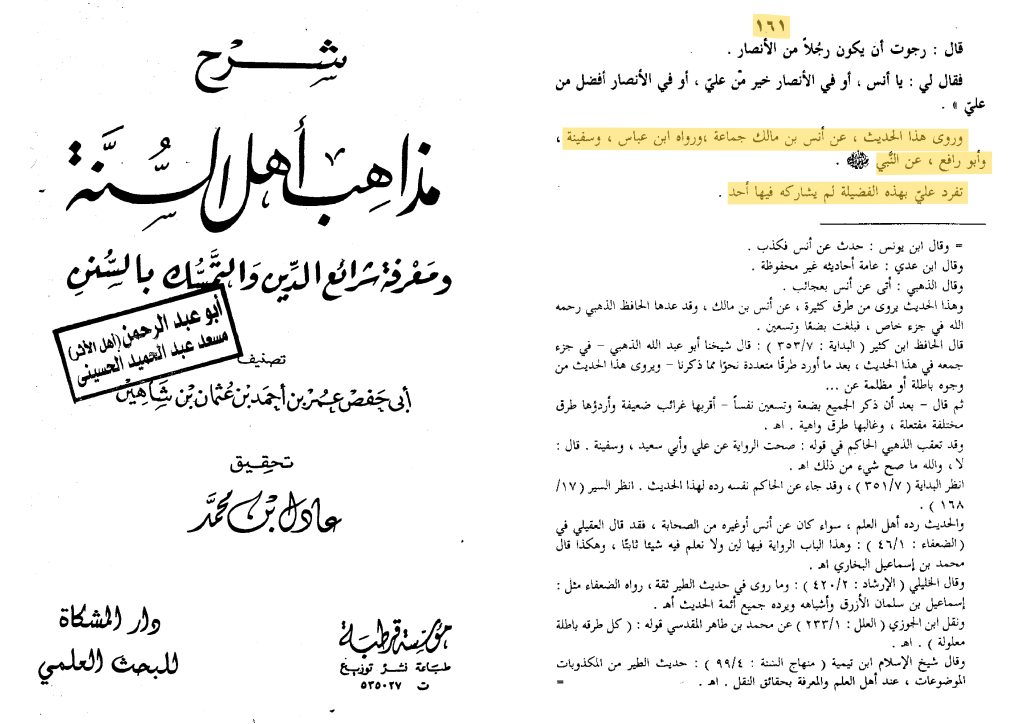 شرح
مذاهب أهل السنَّة
ومعرفة شرائع الدين والتمسُّك بالسُّنن
أبو عبد الرحمن (أهل الأثر)
مسعد عبد الحميد الحسيني
تصنيف
أبي حفص عمر بن أحمد بن عثمان بن شاهين
تحقيق
عادل بن محمد
مؤسسة قرطبة
طباعة نشر توزيع
ت ٥٣٥٠٢٧
دار المشكاة
للبحث العلمي
١٦١
قال : رجوت أن يكون رجُلاً من الأنصار .
فقال لي : يا أنس ، أو في الأنصار خير مّن علي ، أو في الأنصار أفضل من
عليّ » .
وروى هذا الحديث ، عن أنس بن مالك جماعة ،ورواه ابن عباس ، وسفينة ،
وأبو رافع ، عن النَّبي ﷺ .
تفرد عليّ بهذه الفضيلة لم يشاركه فيها أحد .
= وقال ابن يونس : حدث عن أنس فكذب .
وقال ابن عدي : عامة أحاديثه غير محفوظة .
وقال الذهبي : أتى عن أنس بعجائب .
وهذا الحديث يروى من طرق كثيرة ، عن أنس بن مالك ، وقد عدها الحافظ الذهبي رحمه
الله في جزء خاص ، فبلغت بضعًا وتسعين .
قال الحافظ ابن كثير ( البداية : ٣٥٣/٧ ) : قال شيخنا أبو عبد الله الذهبي – في جزء
جمعه في هذا الحديث ، بعد ما أورد طرقًا متعددة نحوًا مما ذكرنا – ويروى هذا الحديث من
وجوه باطلة أو مظلمة عن ...
ثم قال – بعد أن ذكر الجميع بضعة وتسعين نفساً – أقربها غرائب ضعيفة وأردؤها طرق
مختلفة مفتعلة ، وغالبها طرق واهية . اهـ .
وقد تعقب الذهبي الحاكم في قوله : صحت الرواية عن علي وأبي سعيد ، وسفينة . قال :
لا ، والله ما صح شيء من ذلك اهـ .
انظر البداية ( ٣٥١/٧ ) ، وقد جاء عن الحاكم نفسه رده لهذا الحديث . انظر السير (١٧/
١٦٨ ) .
والحديث رده أهل العلم ، سواء كان عن أنس أوغيره من الصحابة ، فقد قال العقيلي في
( الضعفاء : ٤٦/١ ) : وهذا الباب الرواية فيها لين ولا نعلم فيه شيئا ثابتًا ، وهكذا قال
محمد بن إسماعيل البخاري اهـ .
وقال الخليلي ( الإرشاد : ٤٢٠/٢ ) : وما روى في حديث الطير ثقة ، رواه الضعفاء مثل :
إسماعيل بن سلمان الأزرق وأشباهه ويرده جميع أئمة الحديث أهـ .
ونقل ابن الجوزي ( العلل : ٢٣٣/١ ) عن محمد بن طاهر المقدسي قوله : ( كل طرقه باطلة
معلولة ) . اهـ .
وقال شيخ الإسلام ابن تيمية ( منهاج السنة : ٩٩/٤ ) : حديث الطير من المكذوبات
الموضوعات ، عند أهل العلم والمعرفة بحقائق النقل . اهـ . =